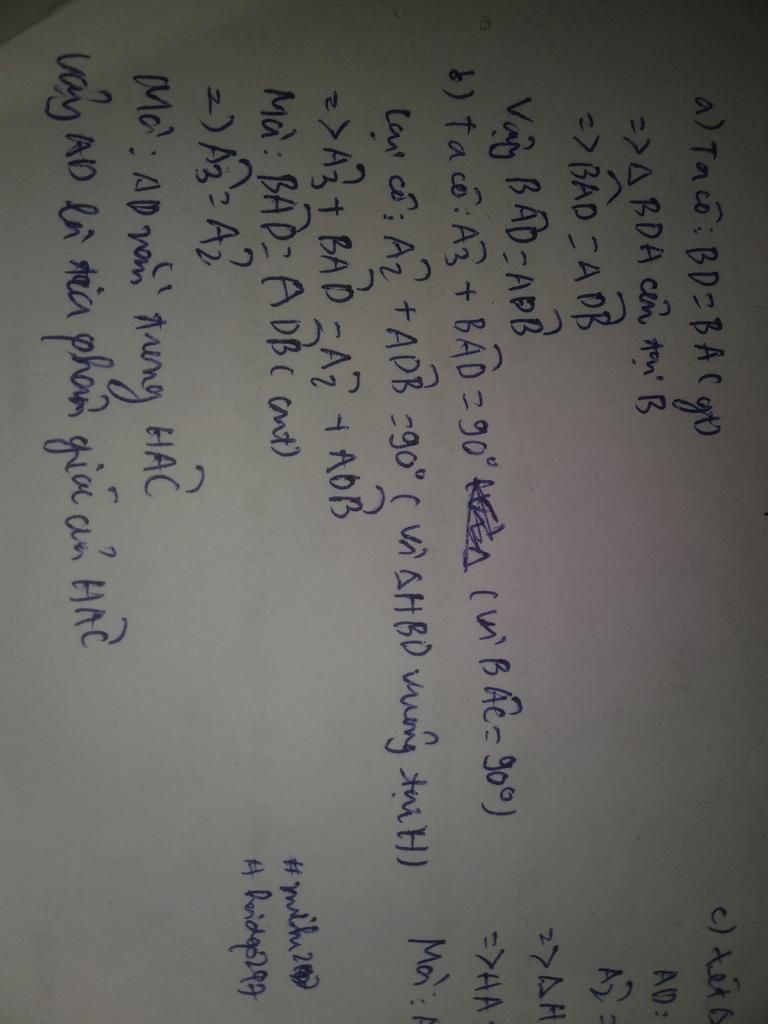 a) Ta có: BD = BA (gt)
=> Δ BDA cân tại B
=> BAD̂ = ADB̂
Vậy BAD̂ = ADB̂
b) Ta có: Â3 + BAD̂ = 90° (vì BAĈ = 90°)
Lại có: Â2 + ADB̂ = 90° (vì Δ HBD vuông tại H)
=> Â3 + BAD̂ = Â2 + ADB̂
Mà: BAD̂ = ADB̂ (cmt)
=> Â3 = Â2
Mà: AD nằm trong HAĈ
Vậy AD là tia phân giác của HAĈ
c) Xét Δ
AD:
Â2 =
=> Δ H
=> HA
Mà: A